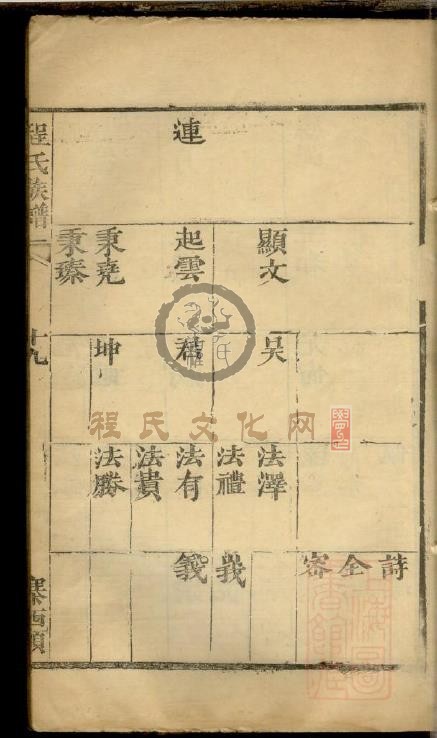 連
顯文
起雲
秉堯
秉瑧
吴
君
坤
法澤
法禮
法有
法貴
法勝
詩
全
容
義
義
程氏族譜
十九
程氏文化网